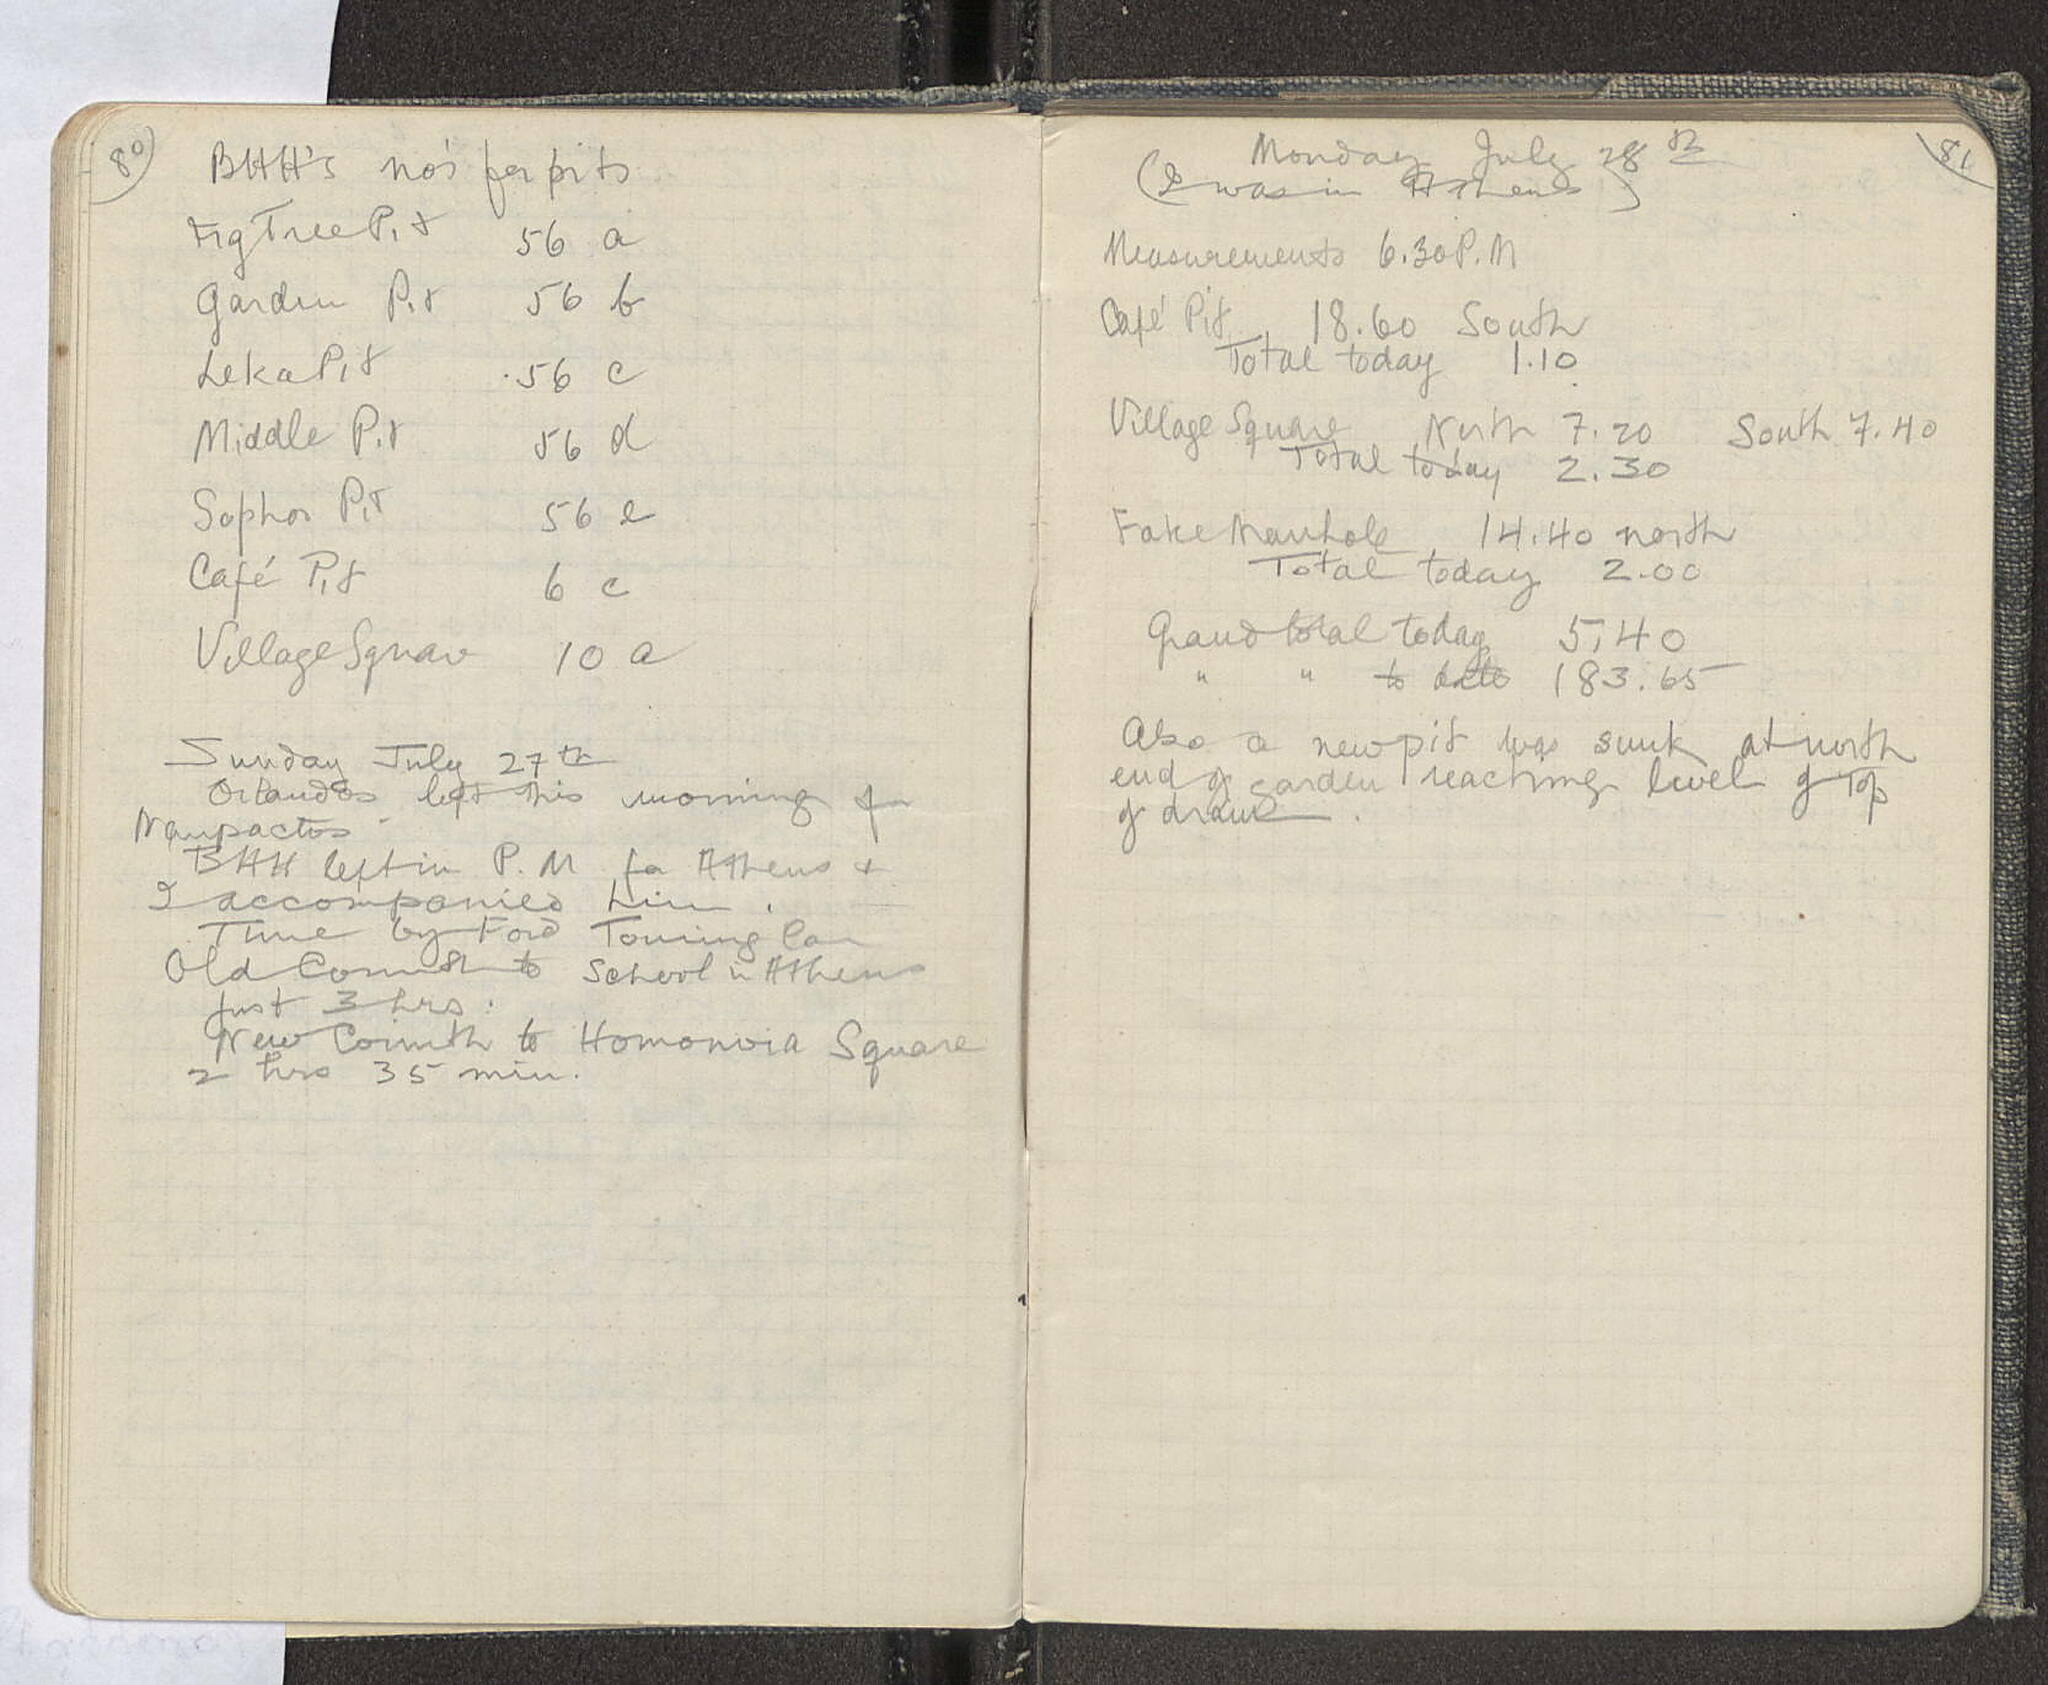 80
BHH's no's for pits
Fig Tree Pit 56 a
Garden Pit 56 b
Leka Pit 56 c
Middle Pit 56 d
Sophos Pit 56 e
Café Pit 6 c
Village Square 10 a
Sunday July 27th
Orlandos left this morning for
Naupactos.
BHH left in P.M for Athens +
I accompanied him.
Time by Ford Touring Car
Old Corinth to School in Athens
just 3 hrs.
New Corinth to Homonoia Square
2 hrs 35 min.
81
Monday July 28th
(I was in Athens)
Measurements 6.30 P.M
Café Pit 18.60 South
Total today 1.10
Village Square North 7.20 South 7.40
Total today 2.30
Fake Manhole 14.40 north
Total today 2.00
Grand total today 5.40
" " to date 183.65
Also a new pit was sunk at north
end of garden reaching level of top
of drain.